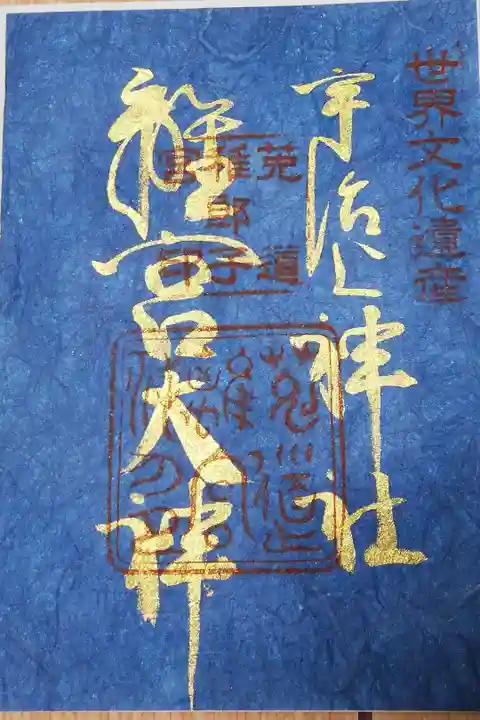 世界文化遺産
宇治上神社
離宮大神
菟道
稚郎子
宮印